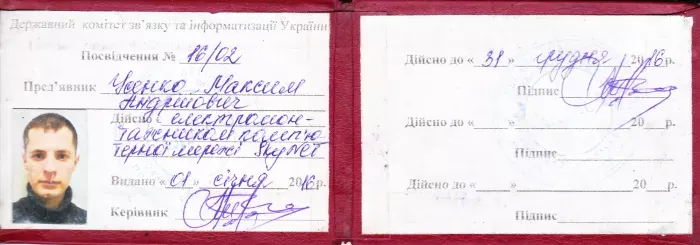 Державний комітет зв'язку та інформатизації України
Посвідчення № 16/02
Пред'явник Усенко Максим
Андрійович
Дійсно є електромон-
тажником комп'ю
терної мережі SkyNet
Видано «01» січня 2016р.
Керівник
Дійсно до «31» грудня 2016р.
Підпис
Дійсно до «___»__________ 20___р.
Підпис
Дійсно до «___»__________ 20___р.
Підпис